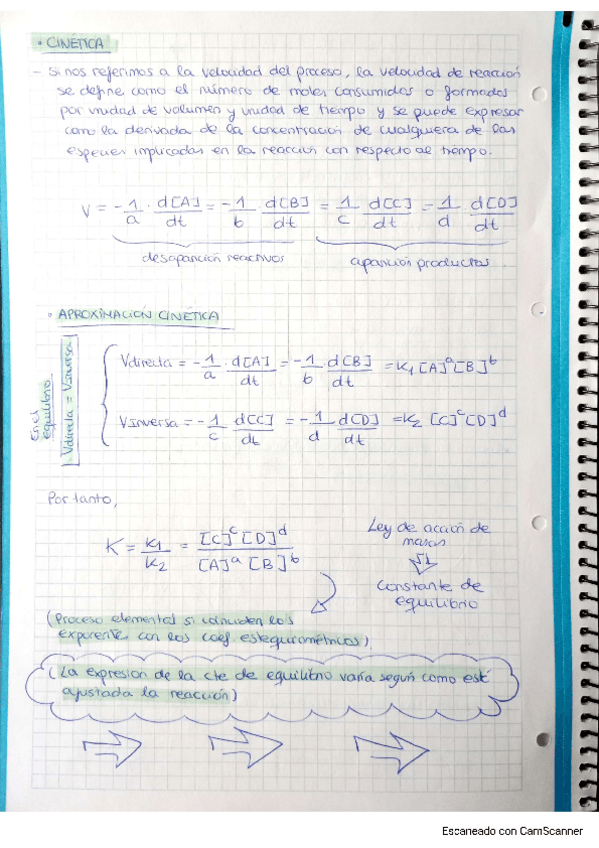 • CINÉTICA
- Si nos referimos a la velocidad del proceso, la velocidad de reacción
se define como el número de moles consumidos o formados
por unidad de volumen y unidad de tiempo y se puede expresar
como la derivada de la concentración de cualquiera de las
especies implicadas en la reacción con respecto al tiempo.
V = -1/a · d[A]/dt = -1/b d[B]/dt = 1/c d[C]/dt = 1/d d[D]/dt
desaparición reactivos aparición productos
• APROXIMACIÓN CINÉTICA
En el equilibrio Vdirecta = Vinversa
Vdirecta = -1/a · d[A]/dt = -1/b d[B]/dt = K1 [A]^a [B]^b
VInversa = -1/c d[C]/dt = -1/d d[D]/dt = K2 [C]^c [D]^d
Por tanto,
K = K1/K2 = [C]^c [D]^d / [A]^a [B]^b
Ley de acción de
masas
Constante de
equilibrio
(Proceso elemental si coinciden los
exponente con los coef. estequiométricos)
(La expresión de la cte de equilibrio varía según como esté
ajustada la reacción)
Escaneado con CamScanner